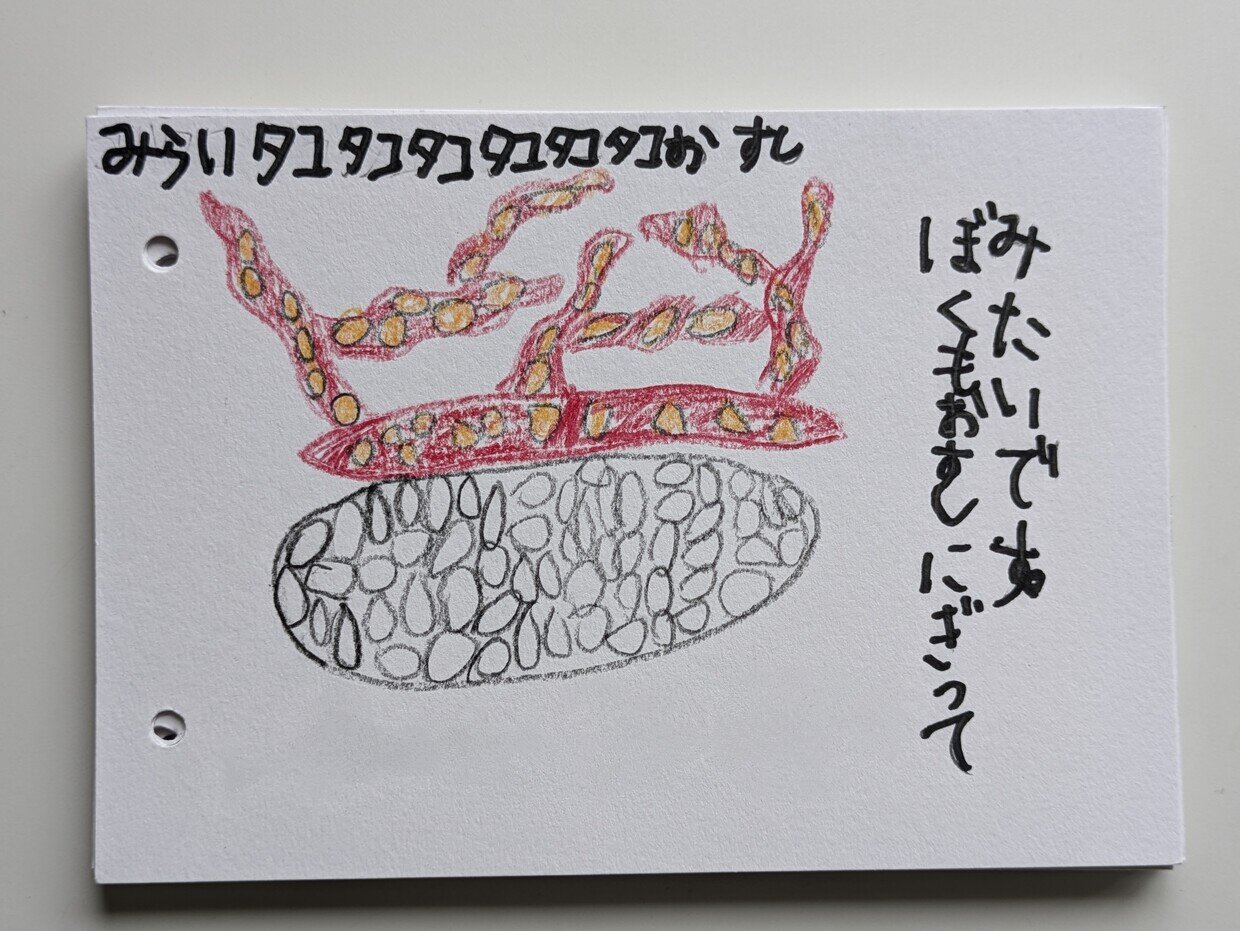 みらいタコタコタコタコタコタコおすし
ぼくもおすしにぎって
みたいです